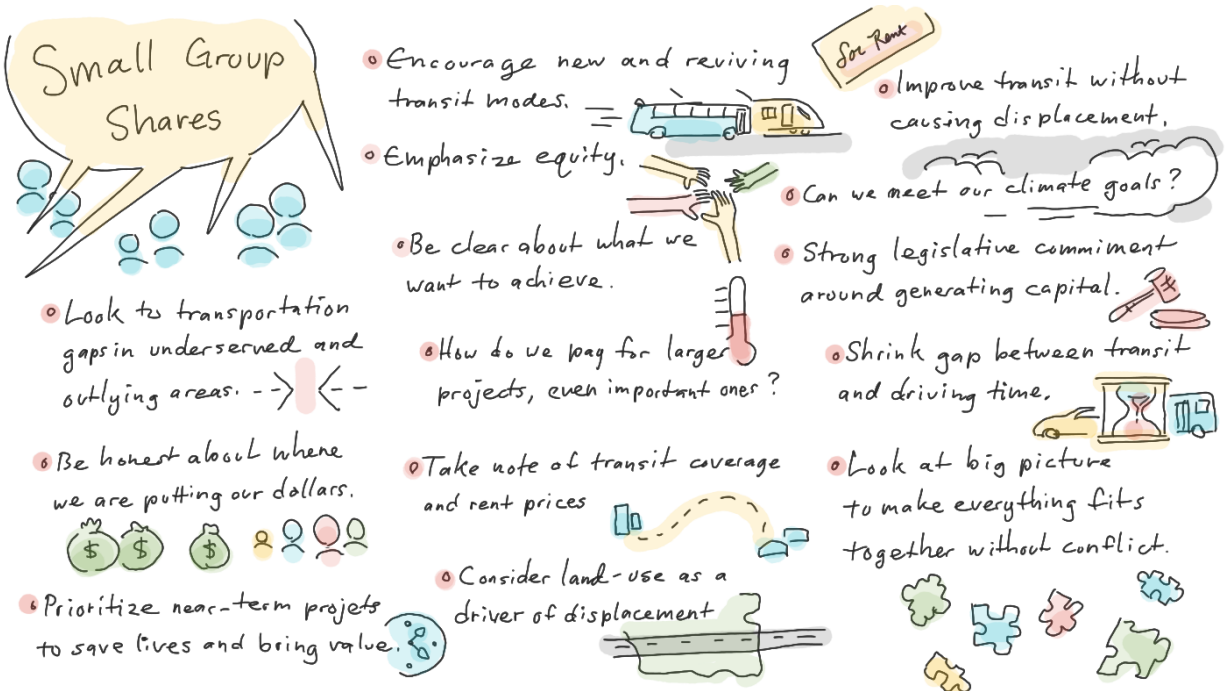 Small Group
Shares
Look to transportation
gaps in underserved and
outlying areas.
Be honest about where
we are putting our dollars.
$ $ $
Prioritize near-term projets
to save lives and bring value.
Encourage new and reviving
transit modes.
Emphasize equity.
Be clear about what we
want to achieve.
How do we pay for larger
projects, even important ones?
Take note of transit coverage
and rent prices
Consider land-use as a
driver of displacement
for Rent
Improve transit without
causing displacement.
Can we meet our climate goals?
Strong legislative commiment
around generating capital.
Shrink gap between transit
and driving time.
Look at big picture
to make everything fits
together without conflict.